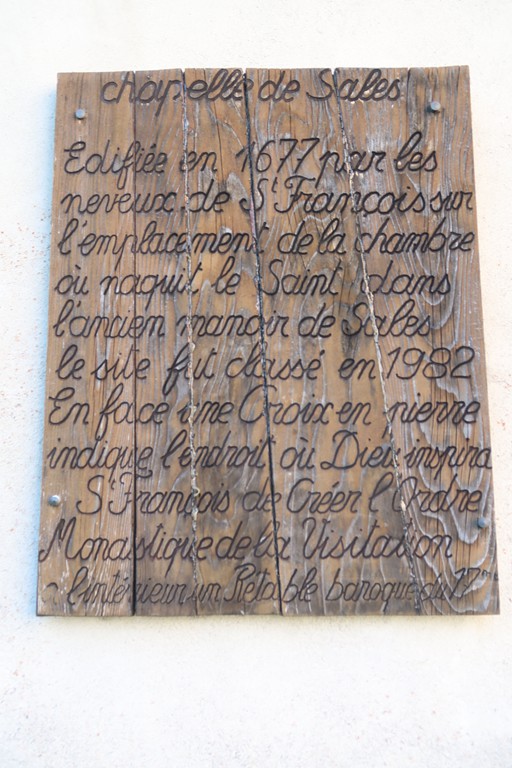 chapelle de Sales
Edifiée en 1677 par les
neveux de St François sur
l'emplacement de la chambre
où naquit le Saint dans
l'ancien manoir de Sales
le site fut classé en 1982
En face une Croix en pierre
indique l'endroit où Dieu inspira
St François de Créer l'Ordre
Monastique de la Visitation
a l'intérieur un Retable baroque du 17me